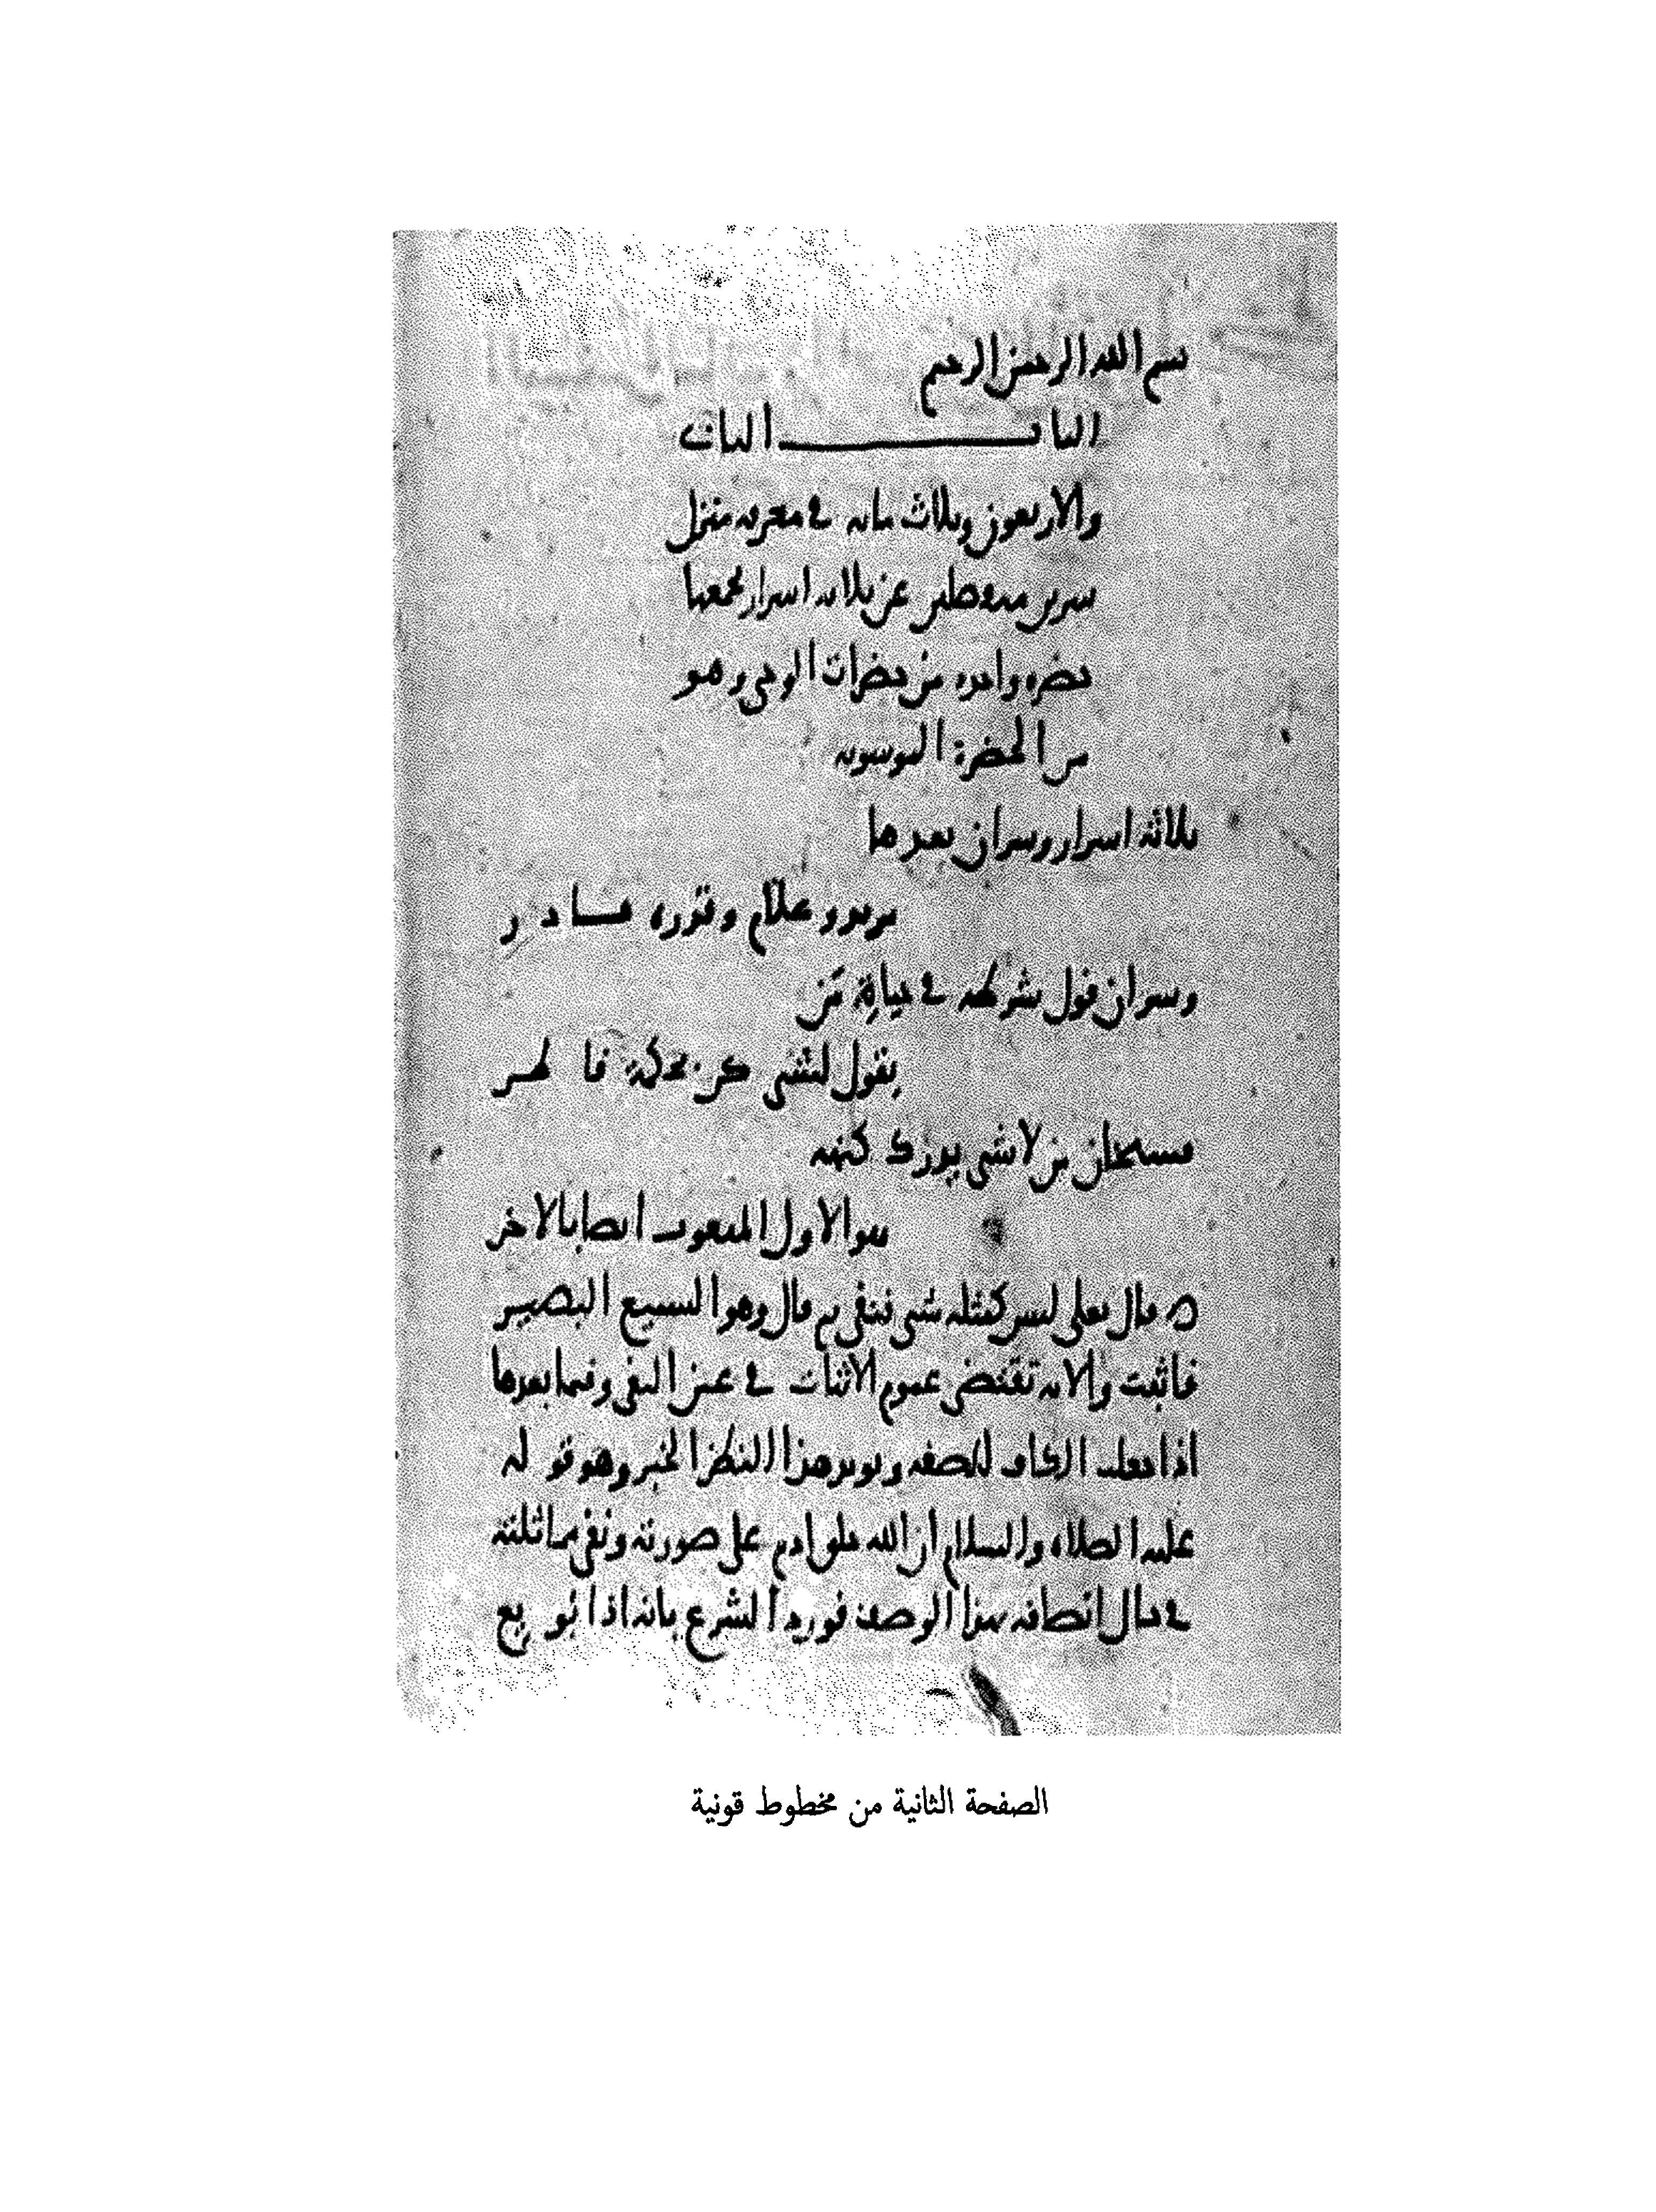 بسم الله الرحمن الرحيم
الباب الثاني
والاربعون وثلاث مايه في معرفه منزل
سرين منفصلين عن ثلاثه اسرار يجمعها
حضره واحده من حضرات الوحي وهو
من الحضرة الموسويه
ثلاثة اسرار وسران بعدها
وقدره قادر
وسران قول شرطه في حياة من
يقول لشى كن بحكمة قاهر
فسبحان من لا شي يدرك كنهه
هو الاول المنعوت ايضا بالاخر
قال تعلى ليس كمثله شى فنفى ثم قال وهو السميع البصير
فاثبت والايه تقتضي عموم الاثبات في عين النفي وفيما بعدها
اذا جعلت الكاف للصفه ويويد هذا النظر الخبر وهو قوله
عليه الصلاه والسلام ان الله خلق ادم على صورته ونفي مماثلته
في حال اتصافه بهذا الوصف فورد الشرع بانه اذا بويع
الصفحة الثانية من مخطوط قونية